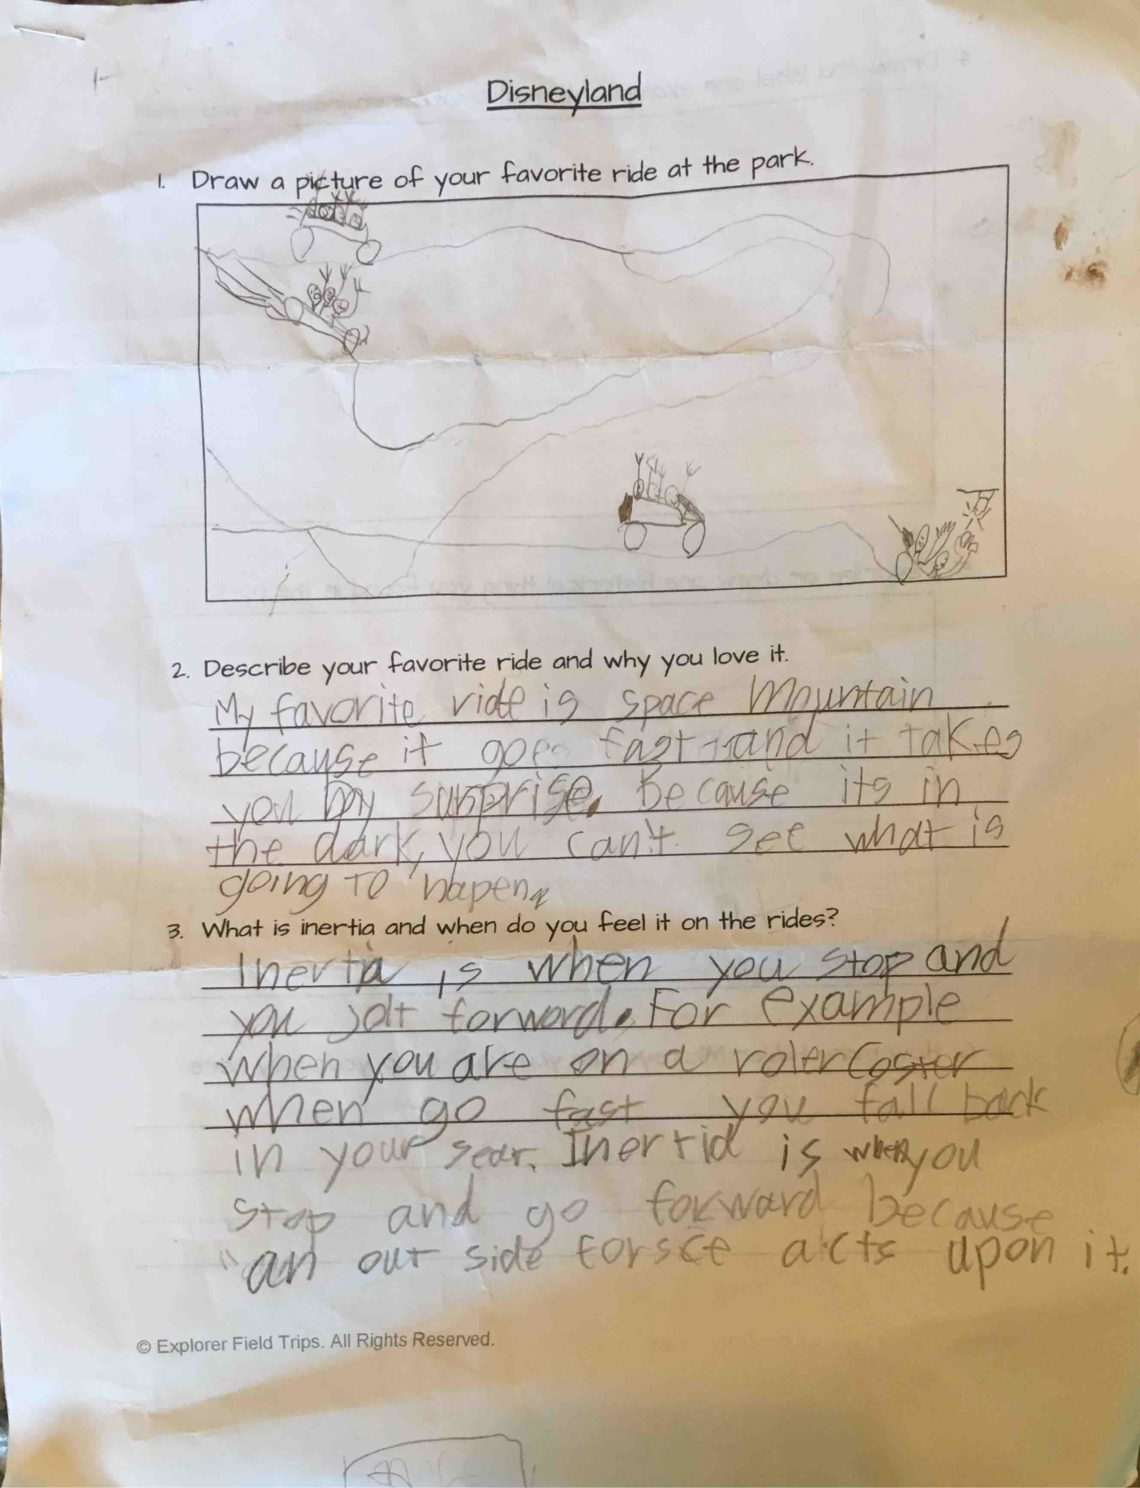 Disneyland
1. Draw a picture of your favorite ride at the park.
2. Describe your favorite ride and why you love it.
My favorite ride is space Mountain
because it goes fast and it takes
you by surprise. Because its in
the dark, you can't see what is
going to hapen.
3. What is inertia and when do you feel it on the rides?
Inertia is when you stop and
you jolt forword. For example
when you are on a roler Coster
when go fast you fall back
in your seat. Inertia is when you
stop and go forward because
an out side forsce acts upon it.
© Explorer Field Trips. All Rights Reserved.